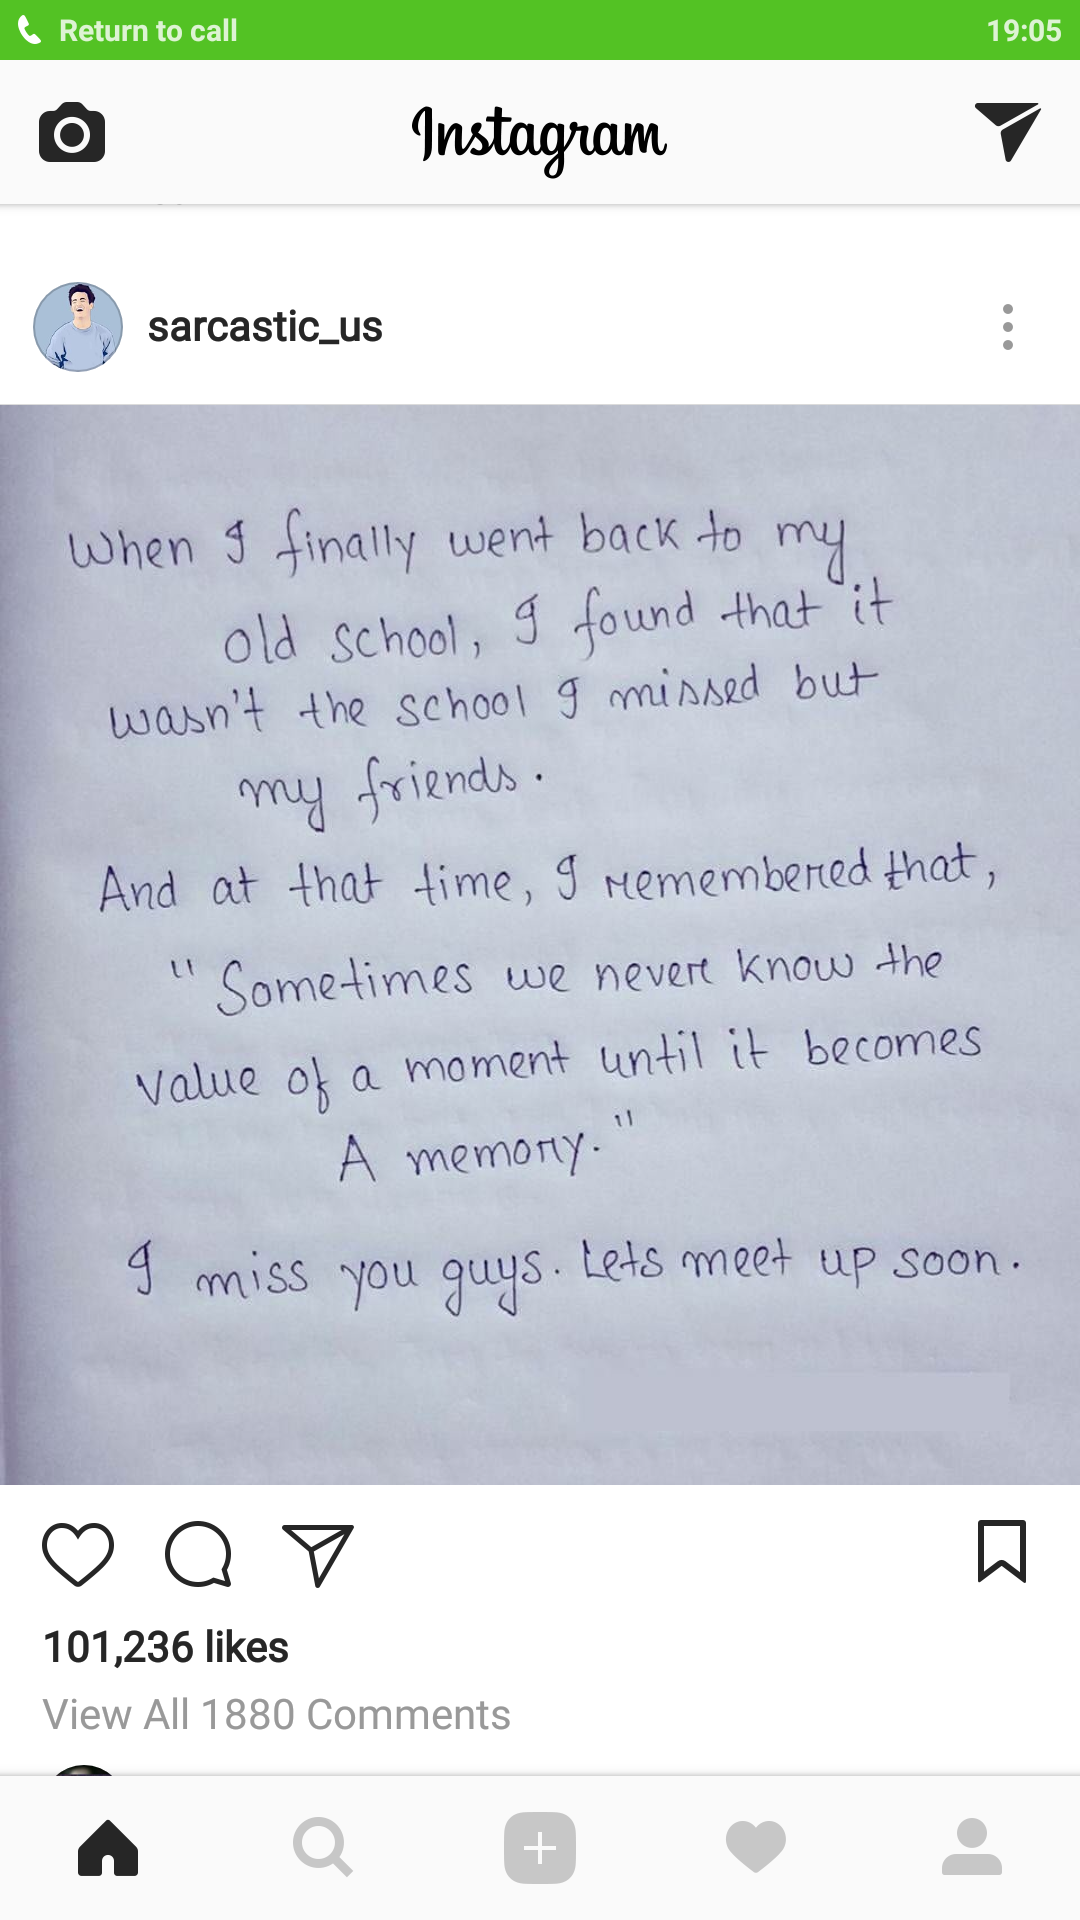 Return to call 19:05
Instagram
sarcastic_us
When I finally went back to my
old school, I found that it
wasn't the school I missed but
my friends.
And at that time, I remembered that,
"Sometimes we never know the
value of a moment until it becomes
A memory."
I miss you guys. Lets meet up soon.
101,236 likes
View All 1880 Comments